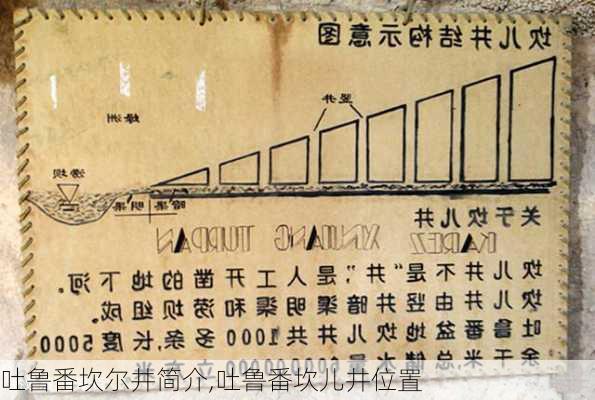 坎儿井结构示意图
竖井
绿洲
涝坝
暗渠 明渠
关于坎儿井
KAREZ XINJIANG TURPAN
坎儿井不是“井”,是人工开凿的地下河。
坎儿井由竖井暗渠明渠和涝坝组成。
吐鲁番盆地坎儿井共1000多条,长度5000
余千米,总储水量
吐鲁番坎尔井简介,吐鲁番坎儿井位置